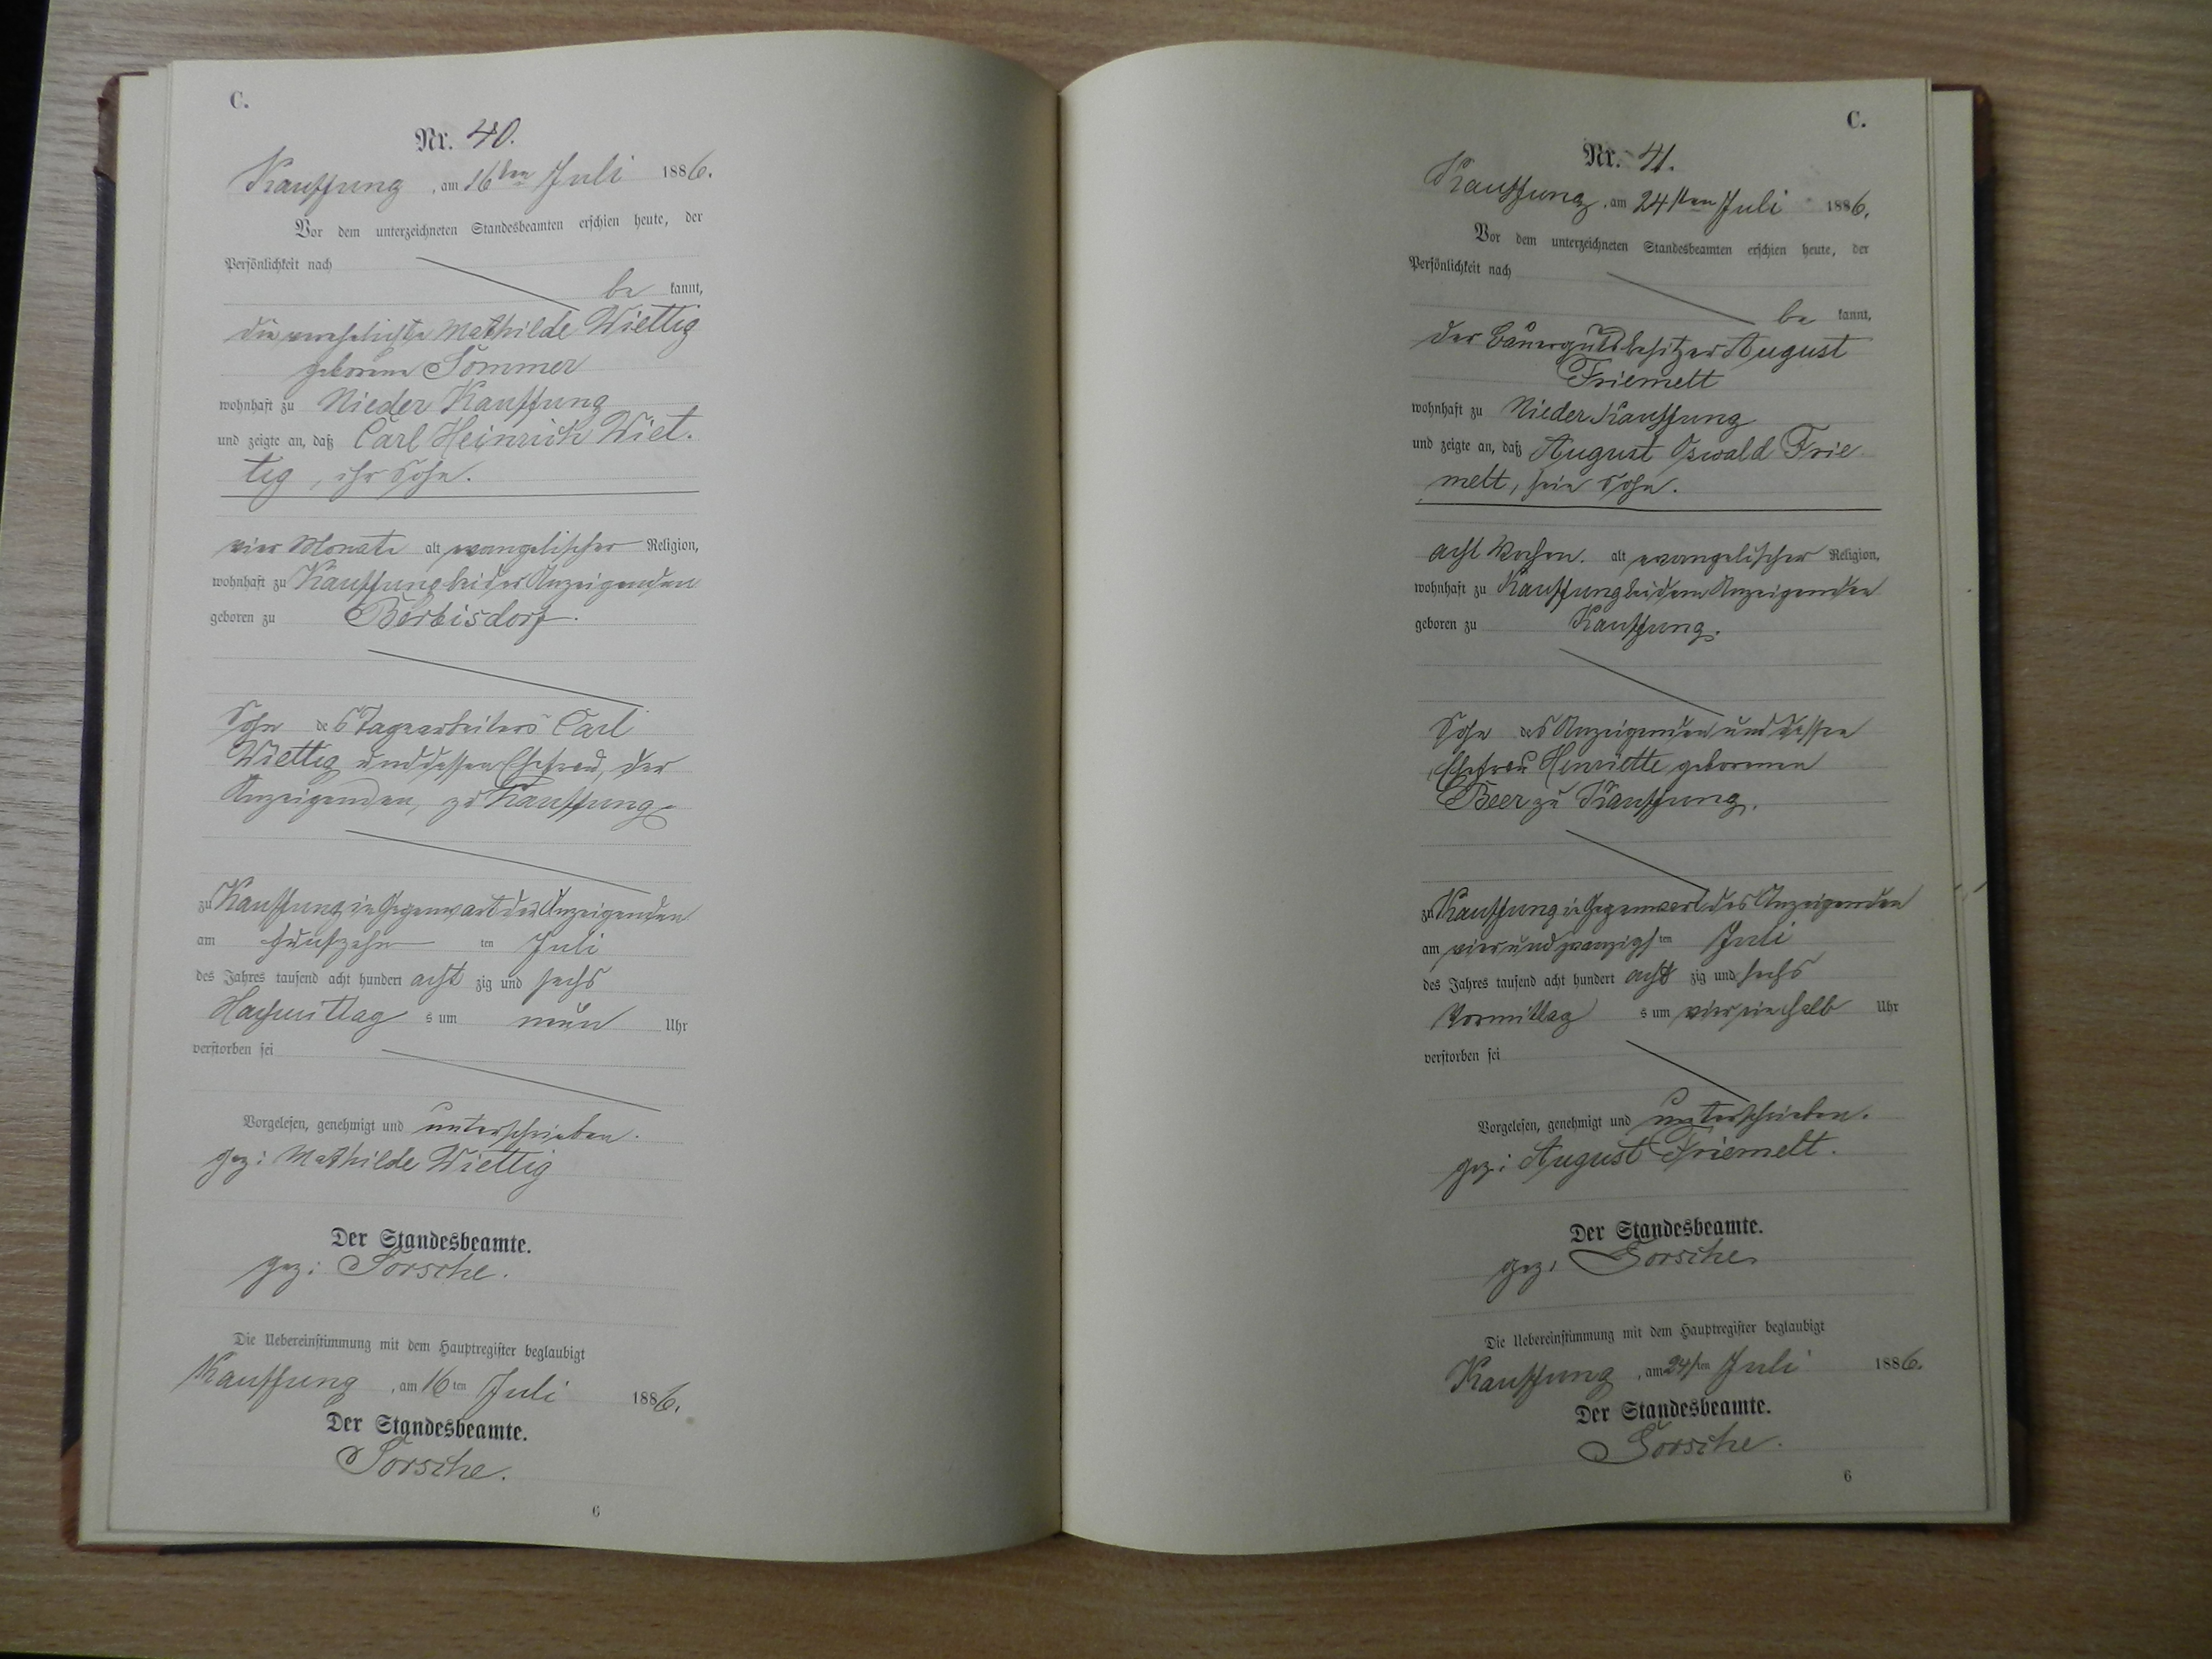 C.
Nr. 40.
Kauffung, am 16ten Juli 1886.
Vor dem unterzeichneten Standesbeamten erschien heute, der
Persönlichkeit nach
be kannt,
die verehelichte Mathilde Wiettig
geborene Sommer
wohnhaft zu Nieder Kauffung
und zeigte an, daß Carl Heinrich Wiet-
tig, ihr Sohn.
vier Monate alt, evangelischer Religion,
wohnhaft zu Kauffung bei der Anzeigenden
geboren zu Berbisdorf.
Sohn des Tagearbeiters Carl
Wiettig und dessen Ehefrau, der
Anzeigenden, zu Kauffung
zu Kauffung in Gegenwart der Anzeigenden
am fünfzehn ten Juli
des Jahres tausend acht hundert acht zig und sechs
Nachmittag s um neun Uhr
verstorben sei
Vorgelesen, genehmigt und unterschrieben.
gez: Mathilde Wiettig
Der Standesbeamte.
gez: Sorsche.
Die Uebereinstimmung mit dem Hauptregister beglaubigt
Kauffung, am 16ten Juli 1886.
Der Standesbeamte.
Sorsche.
6
C.
Nr. 41.
Kauffung, am 24sten Juli 1886.
Vor dem unterzeichneten Standesbeamten erschien heute, der
Persönlichkeit nach
be kannt,
der Bauergutsbesitzer August
Friemelt
wohnhaft zu Nieder Kauffung
und zeigte an, daß August Oswald Frie
melt, sein Sohn.
acht Wochen. alt, evangelischer Religion,
wohnhaft zu Kauffung bei dem Anzeigenden
geboren zu Kauffung.
Sohn des Anzeigenden und dessen
Ehefrau Henriette geborenen
Beer zu Kauffung.
zu Kauffung in Gegenwart des Anzeigenden
am vier und zwanzigs ten Juli
des Jahres tausend acht hundert acht zig und sechs
Vormittag s um vier ein halb Uhr
verstorben sei
Vorgelesen, genehmigt und unterschrieben.
gez: August Friemelt.
Der Standesbeamte.
gez: Sorsche.
Die Uebereinstimmung mit dem Hauptregister beglaubigt
Kauffung, am 24sten Juli 1886.
Der Standesbeamte.
Sorsche.
6